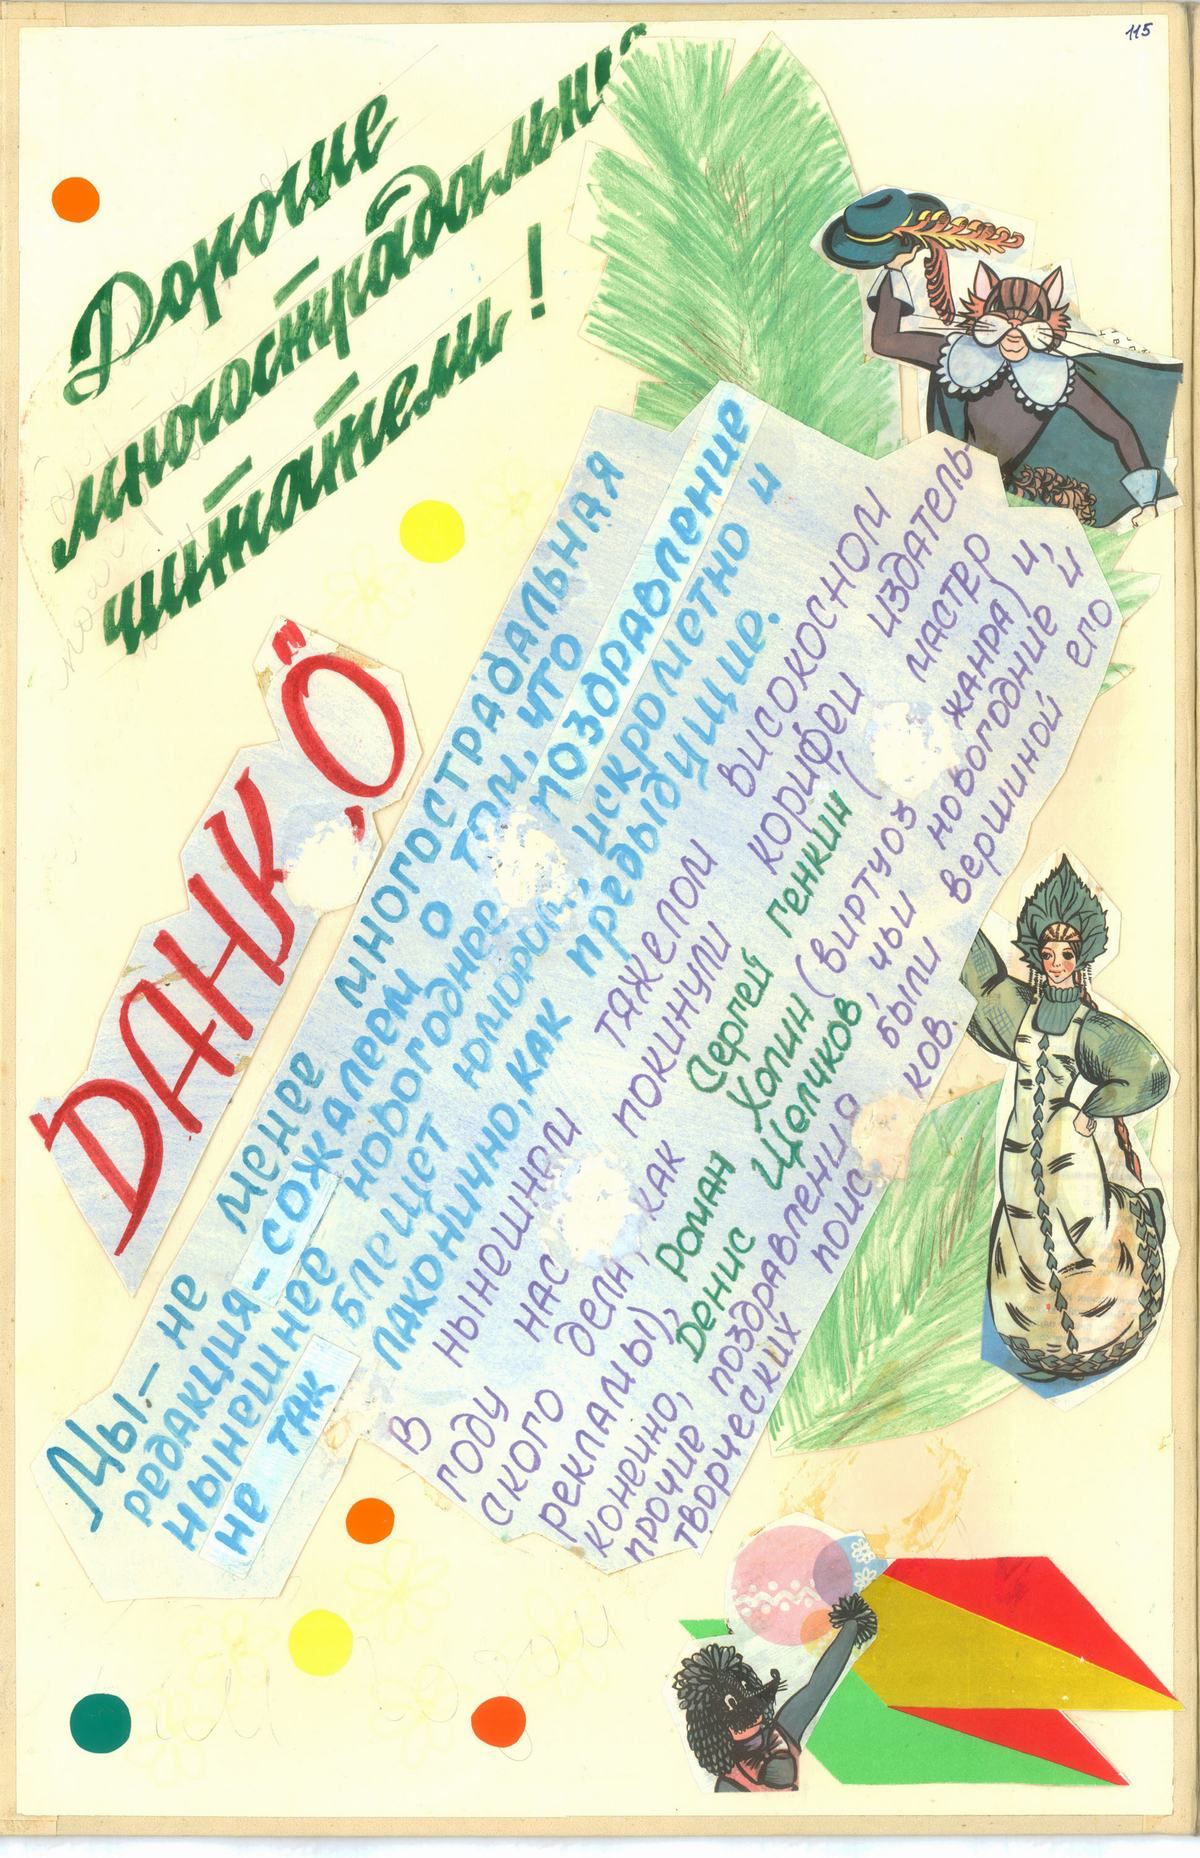 115
Дорогие
многострадальные
читатели!
ДАНКӦ
Мы - не менее многострадальная
редакция - сожалеем о том, что
нынешнее новогоднее поздравление
не так блещет юмором, искрометно и
лаконично, как предыдущие.
В нынешнем тяжелом високосном
году нас покинули корифеи издатель-
ского дела, как Сергей Генкин (мастер
рекламы), Роман Холин (виртуоз жанра) и,
конечно, Денис Щеликов, чьи новогодние и
прочие поздравления были вершиной его
творческих поисков.